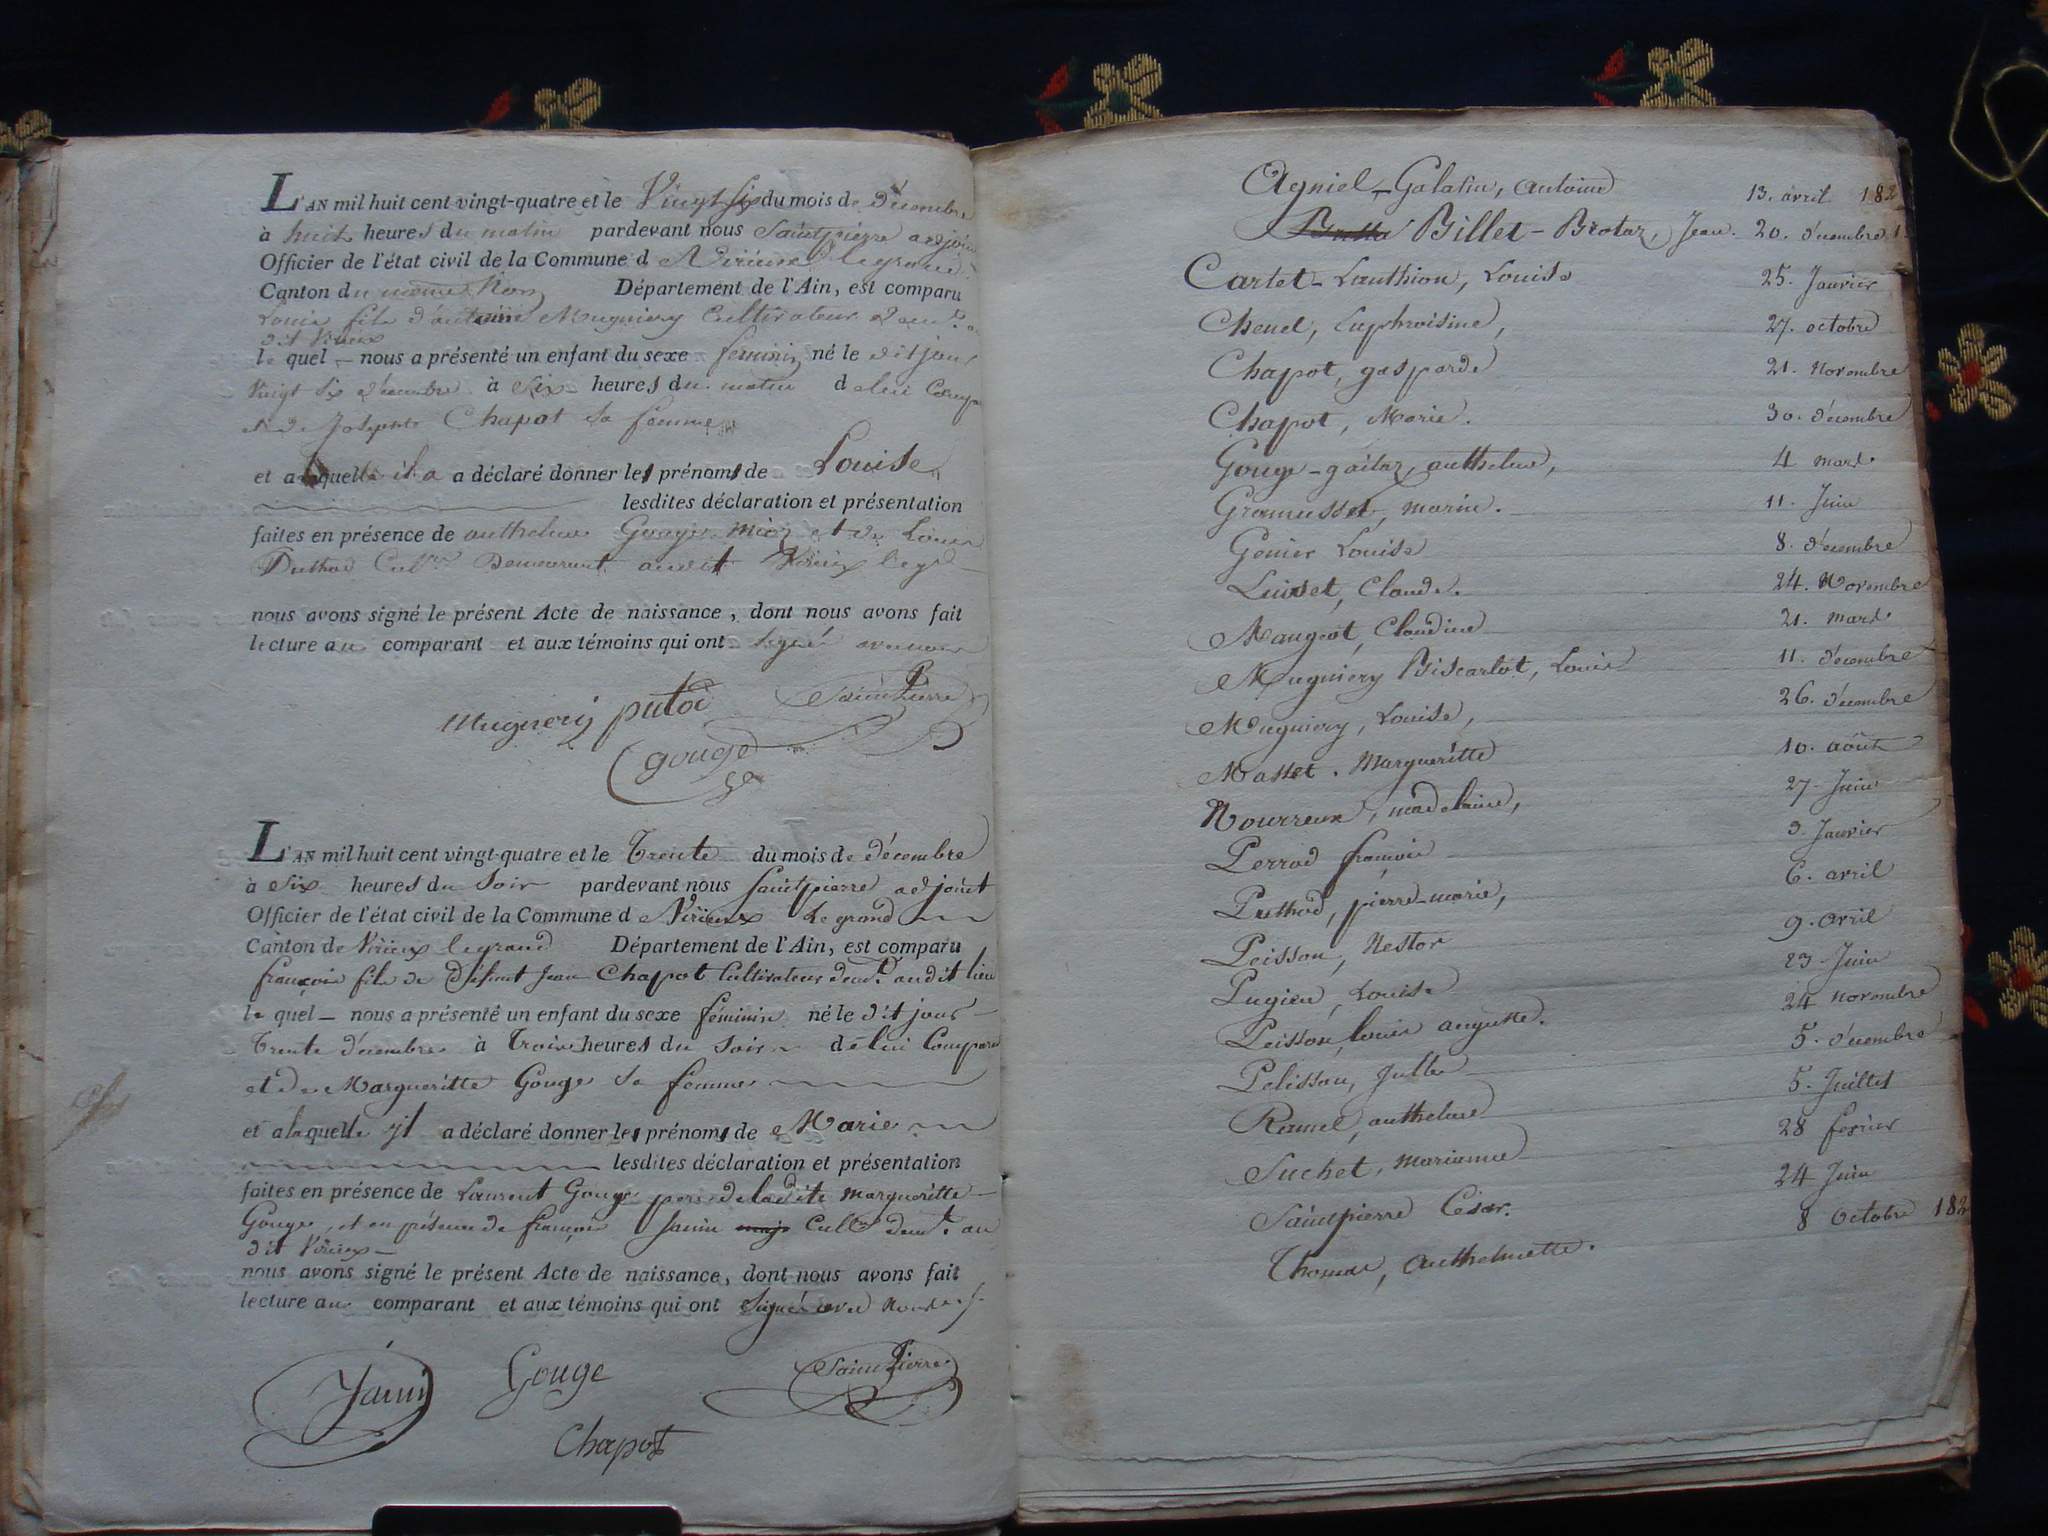 L'AN mil huit cent vingt-quatre et le Vingt six du mois de décembre
à huit heures du matin pardevant nous Saintpierre adjoint
Officier de l'état civil de la Commune d Virieux legrand
Canton du même Nom Département de l'Ain, est comparu
Louis fils d'antoine Mugniery Cultivateur demt. au
dit Virieux
le quel nous a présenté un enfant du sexe feminin né le dit jour
Vingt six décembre à Six heures du matin de lui Compt
et de Josephte Chapot sa femme
et a laquelle il a a déclaré donner les prénoms de Louise
lesdites déclaration et présentation
faites en présence de anthelme Gouge et de Louis
Puthod Culr. Demeurant audit Virieux legd
nous avons signé le présent Acte de naissance, dont nous avons fait
lecture au comparant et aux témoins qui ont signé avec nous
Mugnery putod SaintPierre
gouge
L'AN mil huit cent vingt-quatre et le Trente du mois de décembre
à Six heures du Soir pardevant nous Saintpierre adjoint
Officier de l'état civil de la Commune d Virieux Le grand
Canton de Virieux legrand Département de l'Ain, est comparu
françois fils de Défunt Jean Chapot Cultivateur demt. audit lieu
le quel nous a présenté un enfant du sexe féminin né le dit jour
Trente décembre à Trois heures du Soir de lui Comparant
et de Margueritte Gouge sa femme
et a laquelle jl a déclaré donner les prénoms de Marie
lesdites déclaration et présentation
faites en présence de Laurent Gouge pere de ladite margueritte
Gouge, et en présence de françois Janin Cultr demt. au
dit Virieux
nous avons signé le présent Acte de naissance, dont nous avons fait
lecture au comparant et aux témoins qui ont Signé avec nous
Janin Gouge SaintPierre
Chapot
Agniel-Galatin, antoine 13. avril 182
Billet-Brotaz, Jean. 20. décembre
Cartet-Lanthion, Louise 25. Janvier
Chenel, Euphroisine, 27. octobre
Chapot, gasparde 21. Novembre
Chapot, Marie. 30. décembre
Gouge-gaitaz, anthelme, 4 mars
Gramusset, marie. 11. Juin
Genier Louise 8. décembre
Luiset, Claude. 24. Novembre
Maugeot, Claudine 21. mars
Mugniery Biscarlot, Louis 11. décembre
Mugniery, Louise, 26. décembre
Masset. Margueritte 10. août
Nourreux, madelaine, 27. Juin
Perrod françois 9. Janvier
Puthod, pierre-marie, 6. avril
Peisson, Nestor 9. avril
Pugieu, Louise 23. Juin
Peisson, louis auguste. 24 novembre
Pelisson, Jullie 5. décembre
Ramel, anthelme 5. Juillet
Suchet, marianne 28 février
Saintpierre César. 24 Juin
Thomas, anthelmette. 8 octobre 182